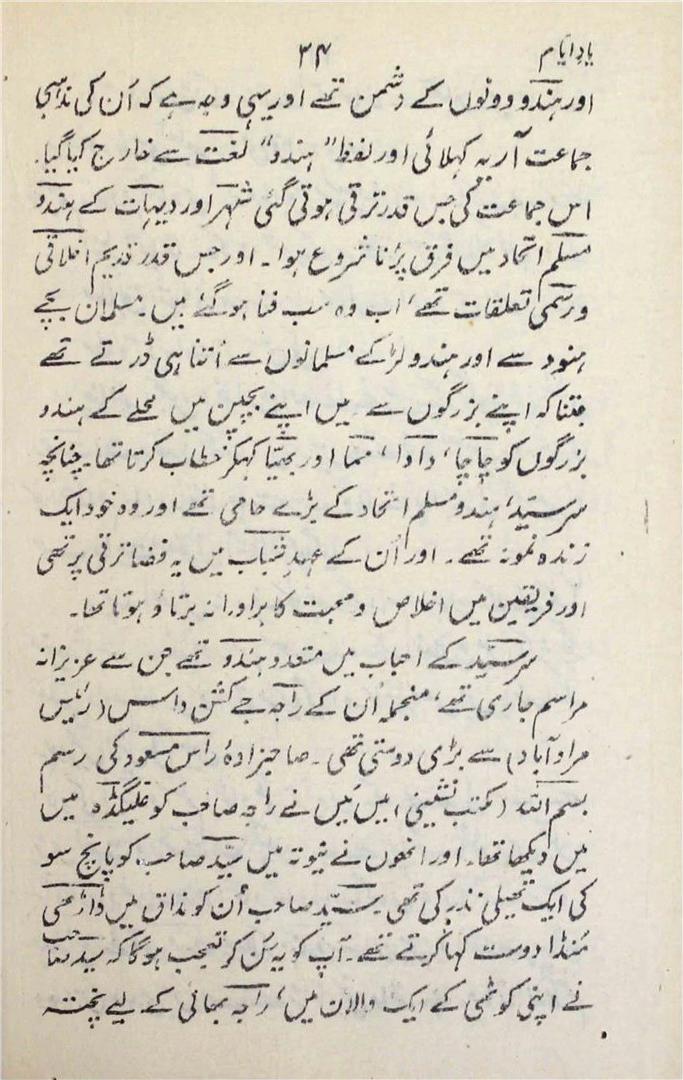 یادِ ایام
۳۴
اور ہندو دونوں کے دشمن تھے اور یہی وجہ ہے کہ اُن کی مذہبی
جماعت آریہ کہلائی اور لفظ "ہندو" لُغت سے خارج کیا گیا۔
اس جماعت کی جس قدر ترقی ہوتی گئی شہر اور دیہات کے ہندو
مسلم اتحاد میں فرق پڑنا شروع ہوا۔ اور جس قدر قدیم اخلاقی
و رسمی تعلقات تھے، اب وہ سب فنا ہو گئے ہیں۔ مسلمان بچے
ہنود سے اور ہندو لڑکے مسلمانوں سے اُتنا ہی ڈرتے تھے
جتنا کہ اپنے بزرگوں سے۔ میں اپنے بچپن میں محلے کے ہندو
بزرگوں کو چاچا، دادا، ممّا اور بھیّا کہکر خطاب کرتا تھا۔ چنانچہ
سرسیّد، ہندو مسلم اتحاد کے بڑے حامی تھے اور وہ خود ایک
زندہ نمونہ تھے۔ اور اُن کے عہدِ شباب میں یہ فضا ترقی پر تھی
اور فریقین میں اخلاص و محبت کا برادرانہ برتاؤ ہوتا تھا۔
سرسیّد کے احباب میں متعدد ہندو تھے جن سے عزیزانہ
مراسم جاری تھے، منجملہ اُن کے راجہ جے کشن داس (رئیس
مرادآباد) سے بڑی دوستی تھی۔ صاحبزادۂ راس مسعود کی رسم
بسم اللہ (مکتب نشینی) میں مَیں نے راجہ صاحب کو علیگڈہ میں
میں دیکھا تھا۔ اور انھوں نے نیوتہ میں سیّد صاحب کو پانچ سو
کی ایک تھیلی نذر کی تھی۔ سیّد صاحب اُن کو مذاق میں ڈاڑھی
مُنڈا دوست کہا کرتے تھے۔ آپ کو یہ سُن کر تعجب ہوگا کہ سیّد صاحب
نے اپنی کوٹھی کے ایک دالان میں، راجہ بھائی کے لیے پختہ